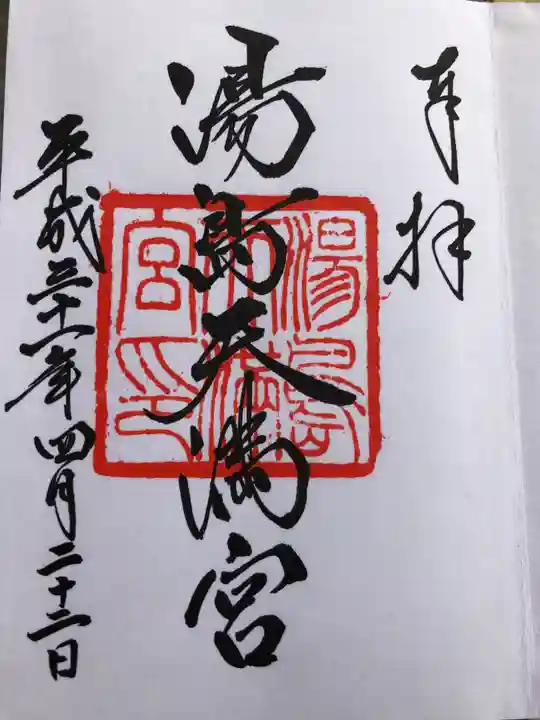 奉拝
湯島天満宮
平成三十一年四月二十二日
湯島
天満
宮印